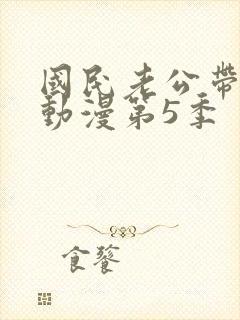 國民老公帶
動漫第5季
食饕